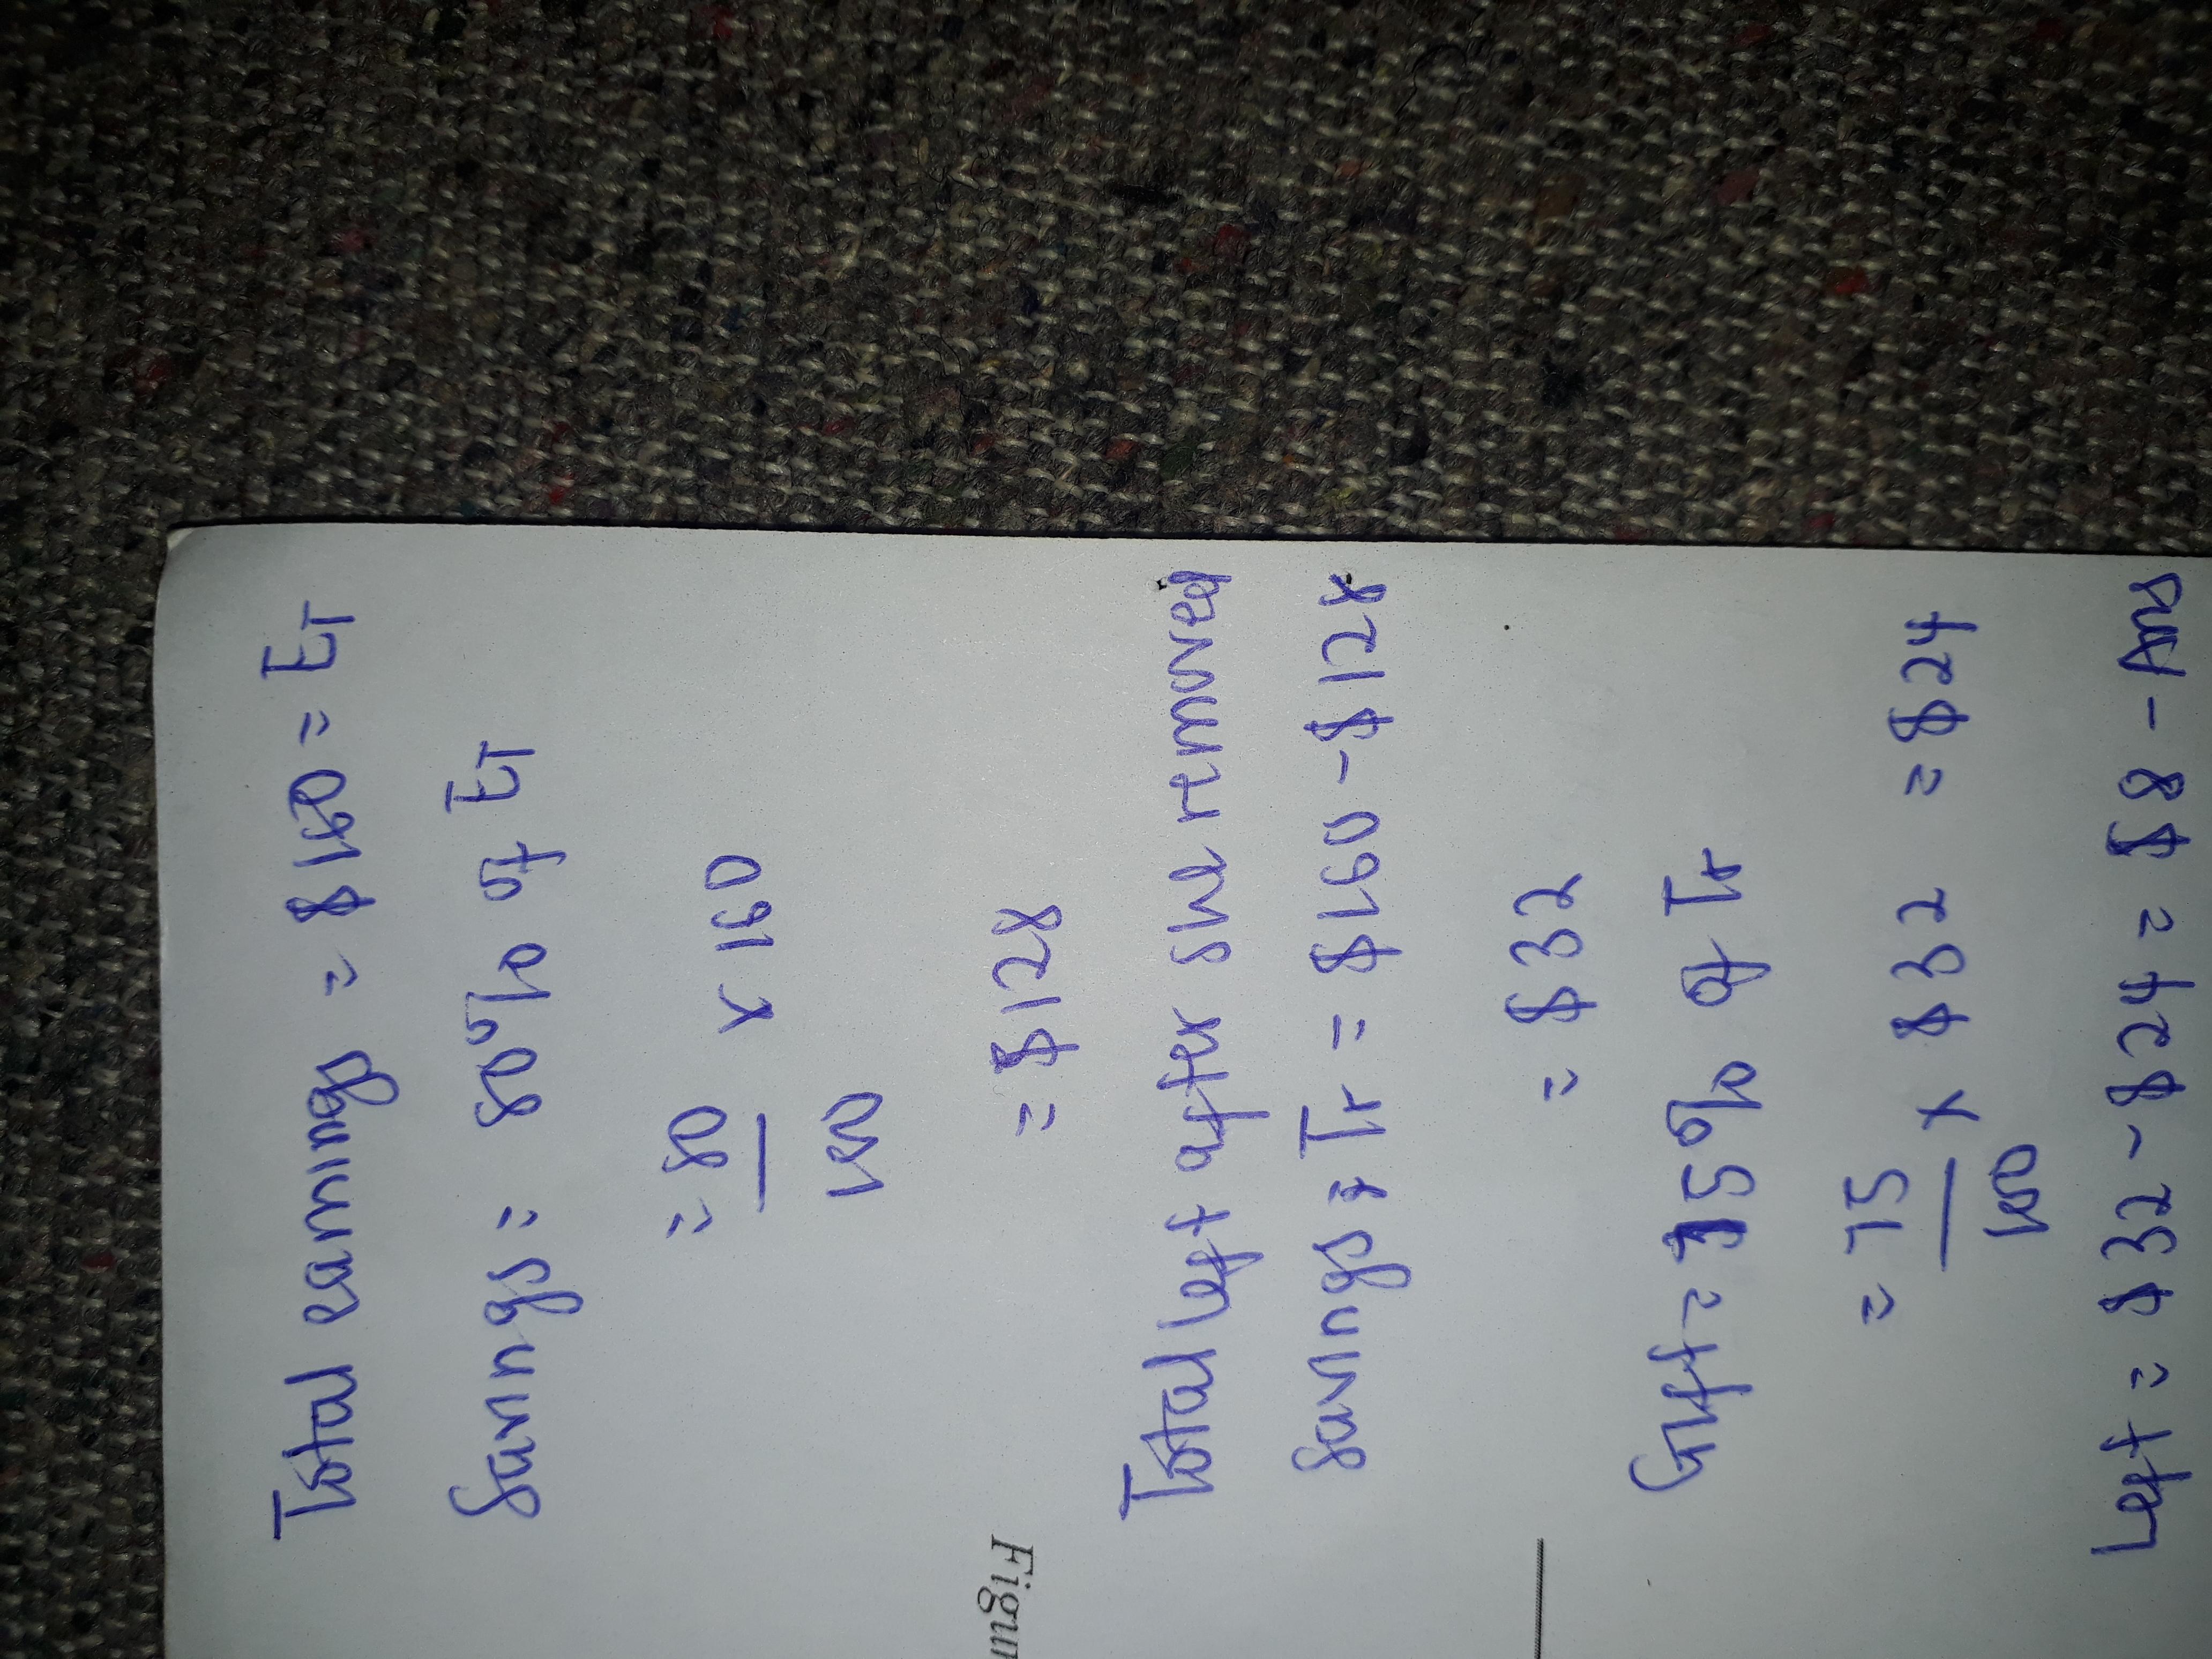 Total earnings = $160 = ET
Savings = 80% of ET
= 80/100 x 160
= $128
Total left after she removed
savings; Tr = $160 - $128
= $32
Gift = 75% of Tr
= 75/100 x $32 = $24
Left = $32 - $24 = $8 - Ans
Figur